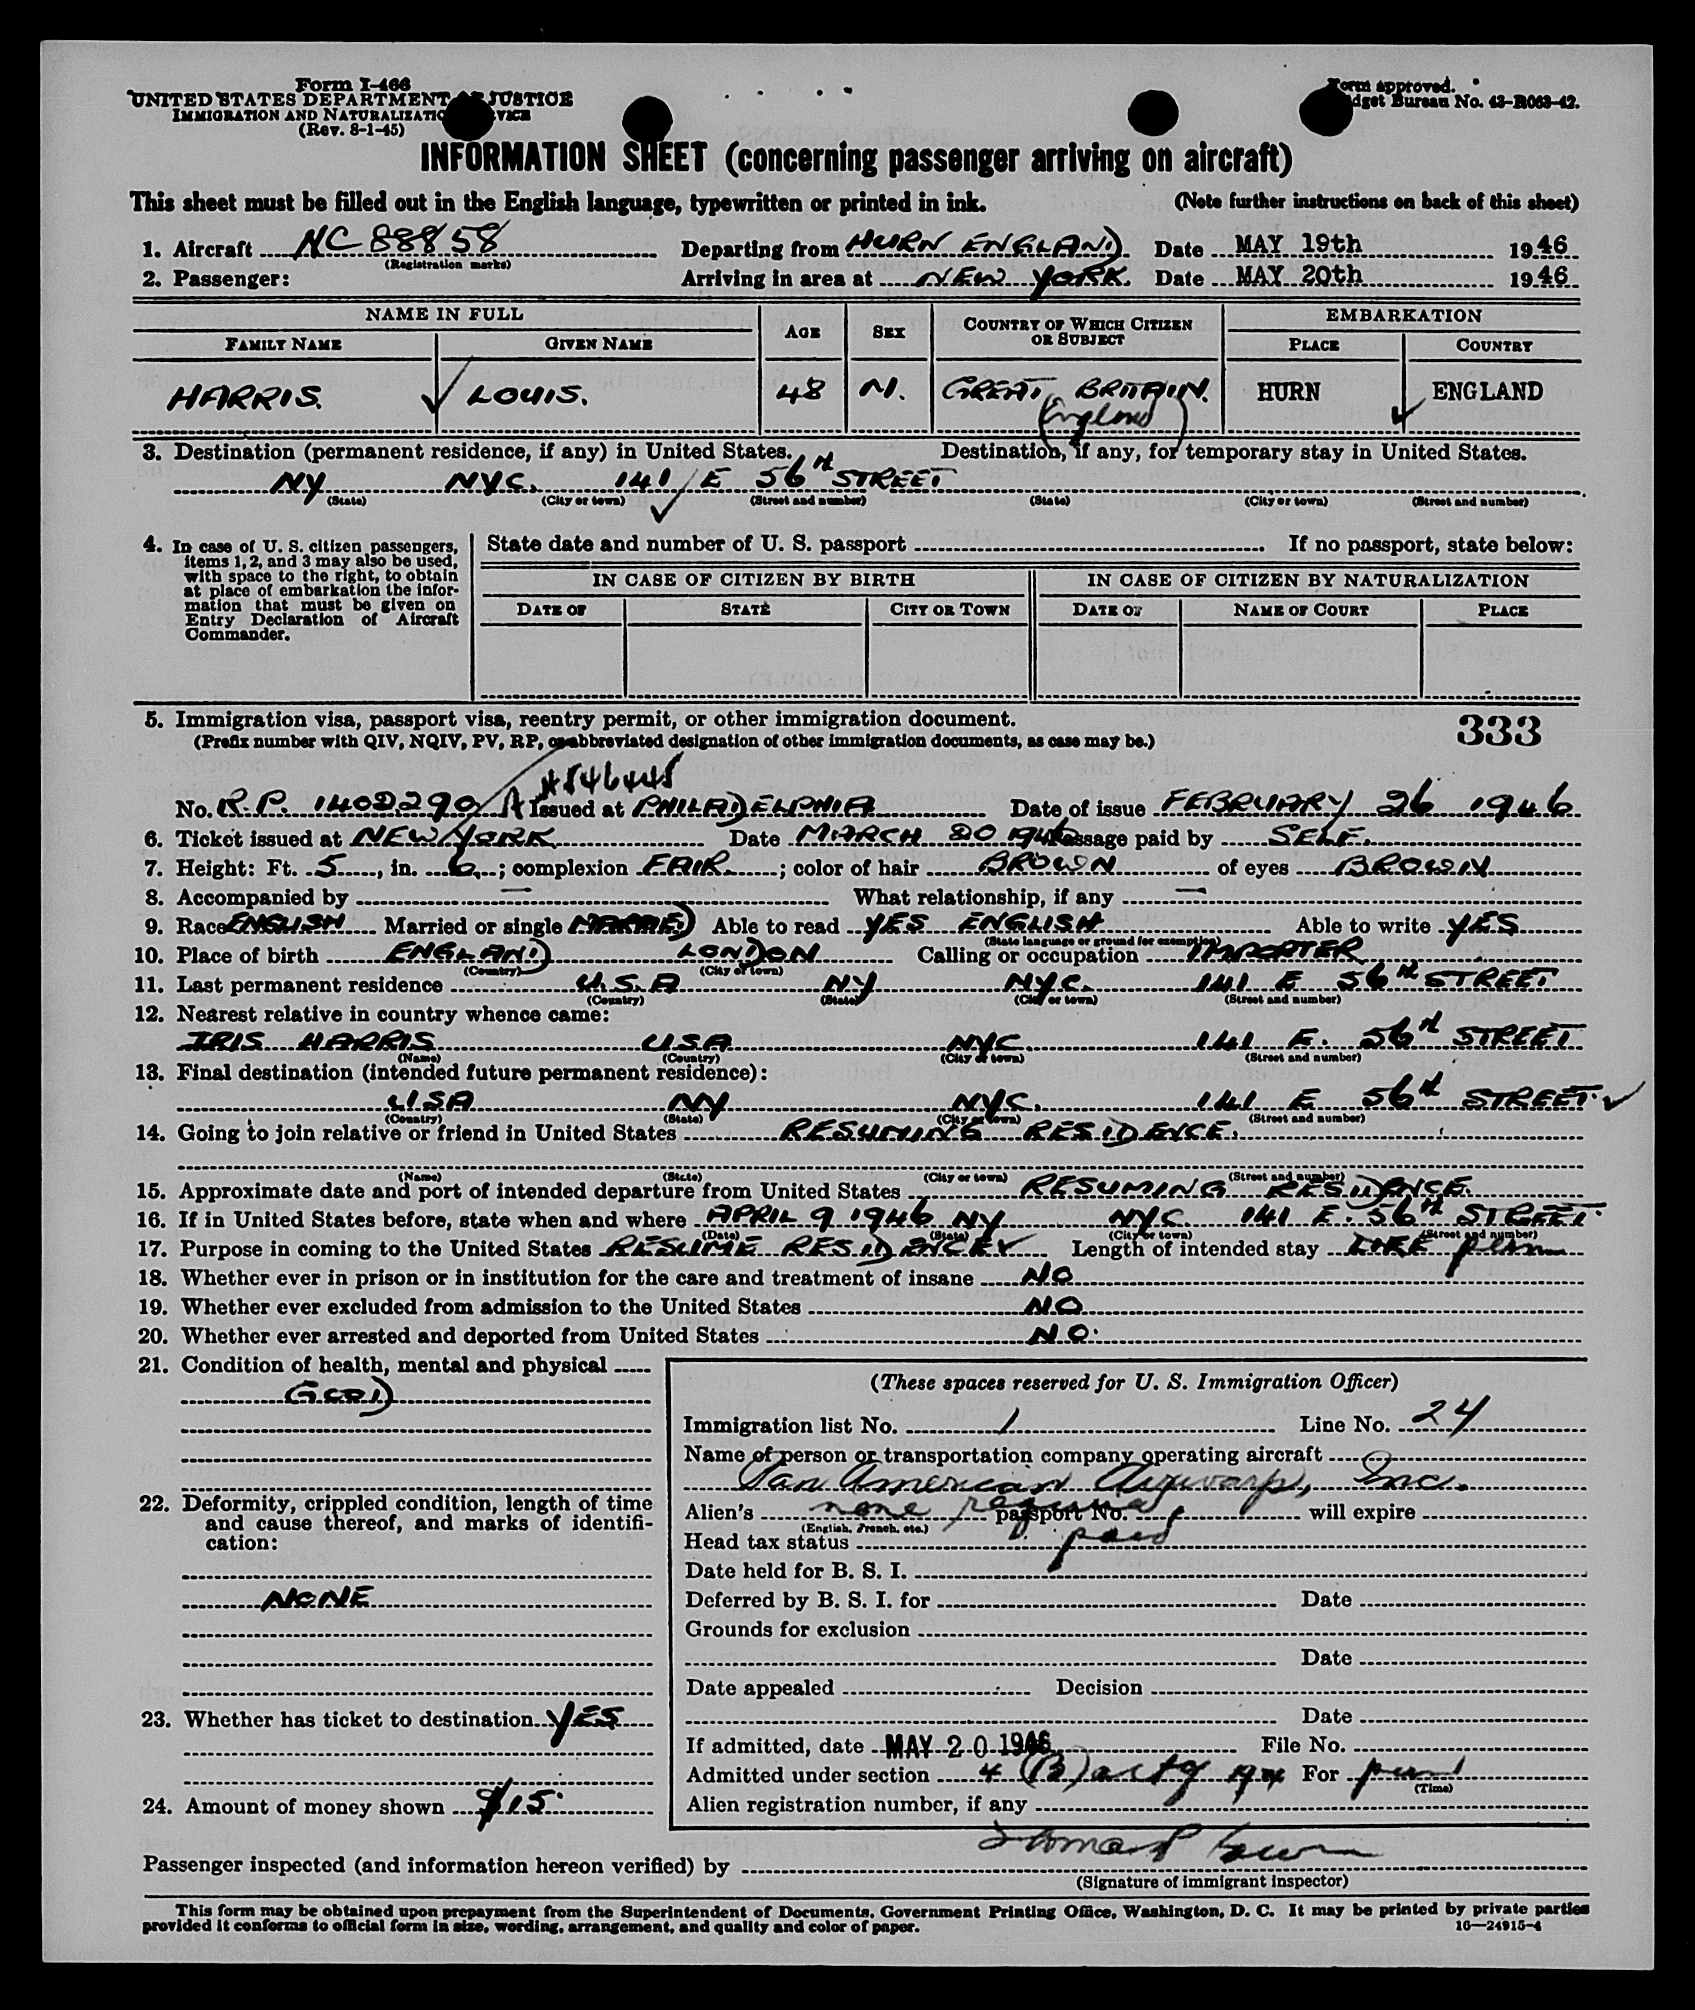 Form I-466
UNITED STATES DEPARTMENT OF JUSTICE
IMMIGRATION AND NATURALIZATION SERVICE
(Rev. 8-1-45)
Form approved.
Budget Bureau No. 43-R063-42.
INFORMATION SHEET (concerning passenger arriving on aircraft)
This sheet must be filled out in the English language, typewritten or printed in ink. (Note further instructions on back of this sheet)
1. Aircraft NC 88858 Departing from HURN ENGLAND Date MAY 19th 1946
(Registration marks)
2. Passenger: Arriving in area at NEW YORK. Date MAY 20th 1946
NAME IN FULL AGE SEX COUNTRY OF WHICH CITIZEN OR SUBJECT EMBARKATION
FAMILY NAME GIVEN NAME PLACE COUNTRY
HARRIS. LOUIS. 48 M. GREAT BRITAIN. HURN ENGLAND
(England)
3. Destination (permanent residence, if any) in United States. Destination, if any, for temporary stay in United States.
NY NYC. 141 E 56TH STREET
(State) (City or town) (Street and number) (State) (City or town) (Street and number)
4. In case of U. S. citizen passengers, items 1, 2, and 3 may also be used, with space to the right, to obtain at place of embarkation the information that must be given on Entry Declaration of Aircraft Commander.
State date and number of U. S. passport If no passport, state below:
IN CASE OF CITIZEN BY BIRTH IN CASE OF CITIZEN BY NATURALIZATION
DATE OF STATE CITY OR TOWN DATE OF NAME OF COURT PLACE
5. Immigration visa, passport visa, reentry permit, or other immigration document. 333
(Prefix number with QIV, NQIV, PV, RP, or abbreviated designation of other immigration documents, as case may be.)
A5446445
No. R.P. 1402290 Issued at PHILADELPHIA Date of issue FEBRUARY 26 1946
6. Ticket issued at NEW YORK Date MARCH 20 1946 Passage paid by SELF.
7. Height: Ft. 5, in. 6; complexion FAIR; color of hair BROWN of eyes BROWN
8. Accompanied by — What relationship, if any —
9. Race ENGLISH Married or single MARRIED Able to read YES ENGLISH Able to write YES
(State language or ground for exemption)
10. Place of birth ENGLAND LONDON Calling or occupation IMPORTER
(Country) (City or town)
11. Last permanent residence U.S.A NY NYC. 141 E 56TH STREET
(Country) (State) (City or town) (Street and number)
12. Nearest relative in country whence came:
IRIS HARRIS USA NYC 141 E. 56TH STREET
(Name) (Country) (City or town) (Street and number)
13. Final destination (intended future permanent residence):
USA NY NYC. 141 E 56TH STREET.
(Country) (State) (City or town) (Street and number)
14. Going to join relative or friend in United States RESUMING RESIDENCE.
(Name) (State) (City or town) (Street and number)
15. Approximate date and port of intended departure from United States RESUMING RESIDENCE.
16. If in United States before, state when and where APRIL 9 1946 NY NYC. 141 E. 56TH STREET.
(Date) (State) (City or town) (Street and number)
17. Purpose in coming to the United States RESUME RESIDENCE Length of intended stay LIFE perm
18. Whether ever in prison or in institution for the care and treatment of insane NO
19. Whether ever excluded from admission to the United States NO
20. Whether ever arrested and deported from United States NO.
21. Condition of health, mental and physical
GOOD
22. Deformity, crippled condition, length of time
and cause thereof, and marks of identifi-
cation:
NONE
23. Whether has ticket to destination YES
24. Amount of money shown $15
(These spaces reserved for U. S. Immigration Officer)
Immigration list No. 1 Line No. 24
Name of person or transportation company operating aircraft
Pan American Airways, Inc.
Alien's none required passport No. will expire
(English, French, etc.)
Head tax status paid
Date held for B. S. I.
Deferred by B. S. I. for Date
Grounds for exclusion
Date
Date appealed Decision
Date
If admitted, date MAY 20 1946 File No.
Admitted under section 4 (B) act of 1924 For perm
(Time)
Alien registration number, if any
Passenger inspected (and information hereon verified) by
(Signature of immigrant inspector)
This form may be obtained upon prepayment from the Superintendent of Documents, Government Printing Office, Washington, D. C. It may be printed by private parties
provided it conforms to official form in size, wording, arrangement, and quality and color of paper. 16—24915-4